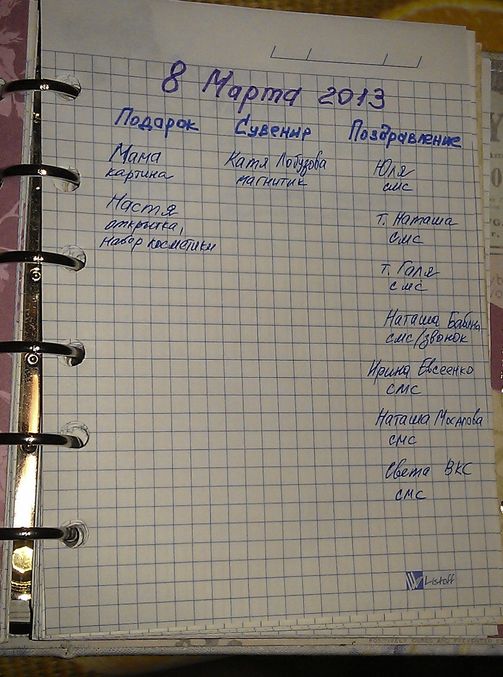 8 Марта 2013
Подарок Сувенир Поздравление
Мама
картина
Настя
открытка,
набор косметики
Катя Лобузова
магнитик
Юля
смс
т. Наташа
смс
т. Галя
смс
Наташа Бабина
смс/звонок
Ирина Евсеенко
смс
Наташа
смс
Света ВКС
смс
Listoff